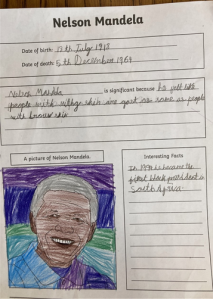 Nelson Mandela
Date of birth: 18th July 1918
Date of death: 5th December
Nelson Mandela is significant because he felt like
people with skin are just as same as people
with brown skin
A picture of Nelson Mandela
Interesting Facts
In 1994 he became the
first black president in
South Africa